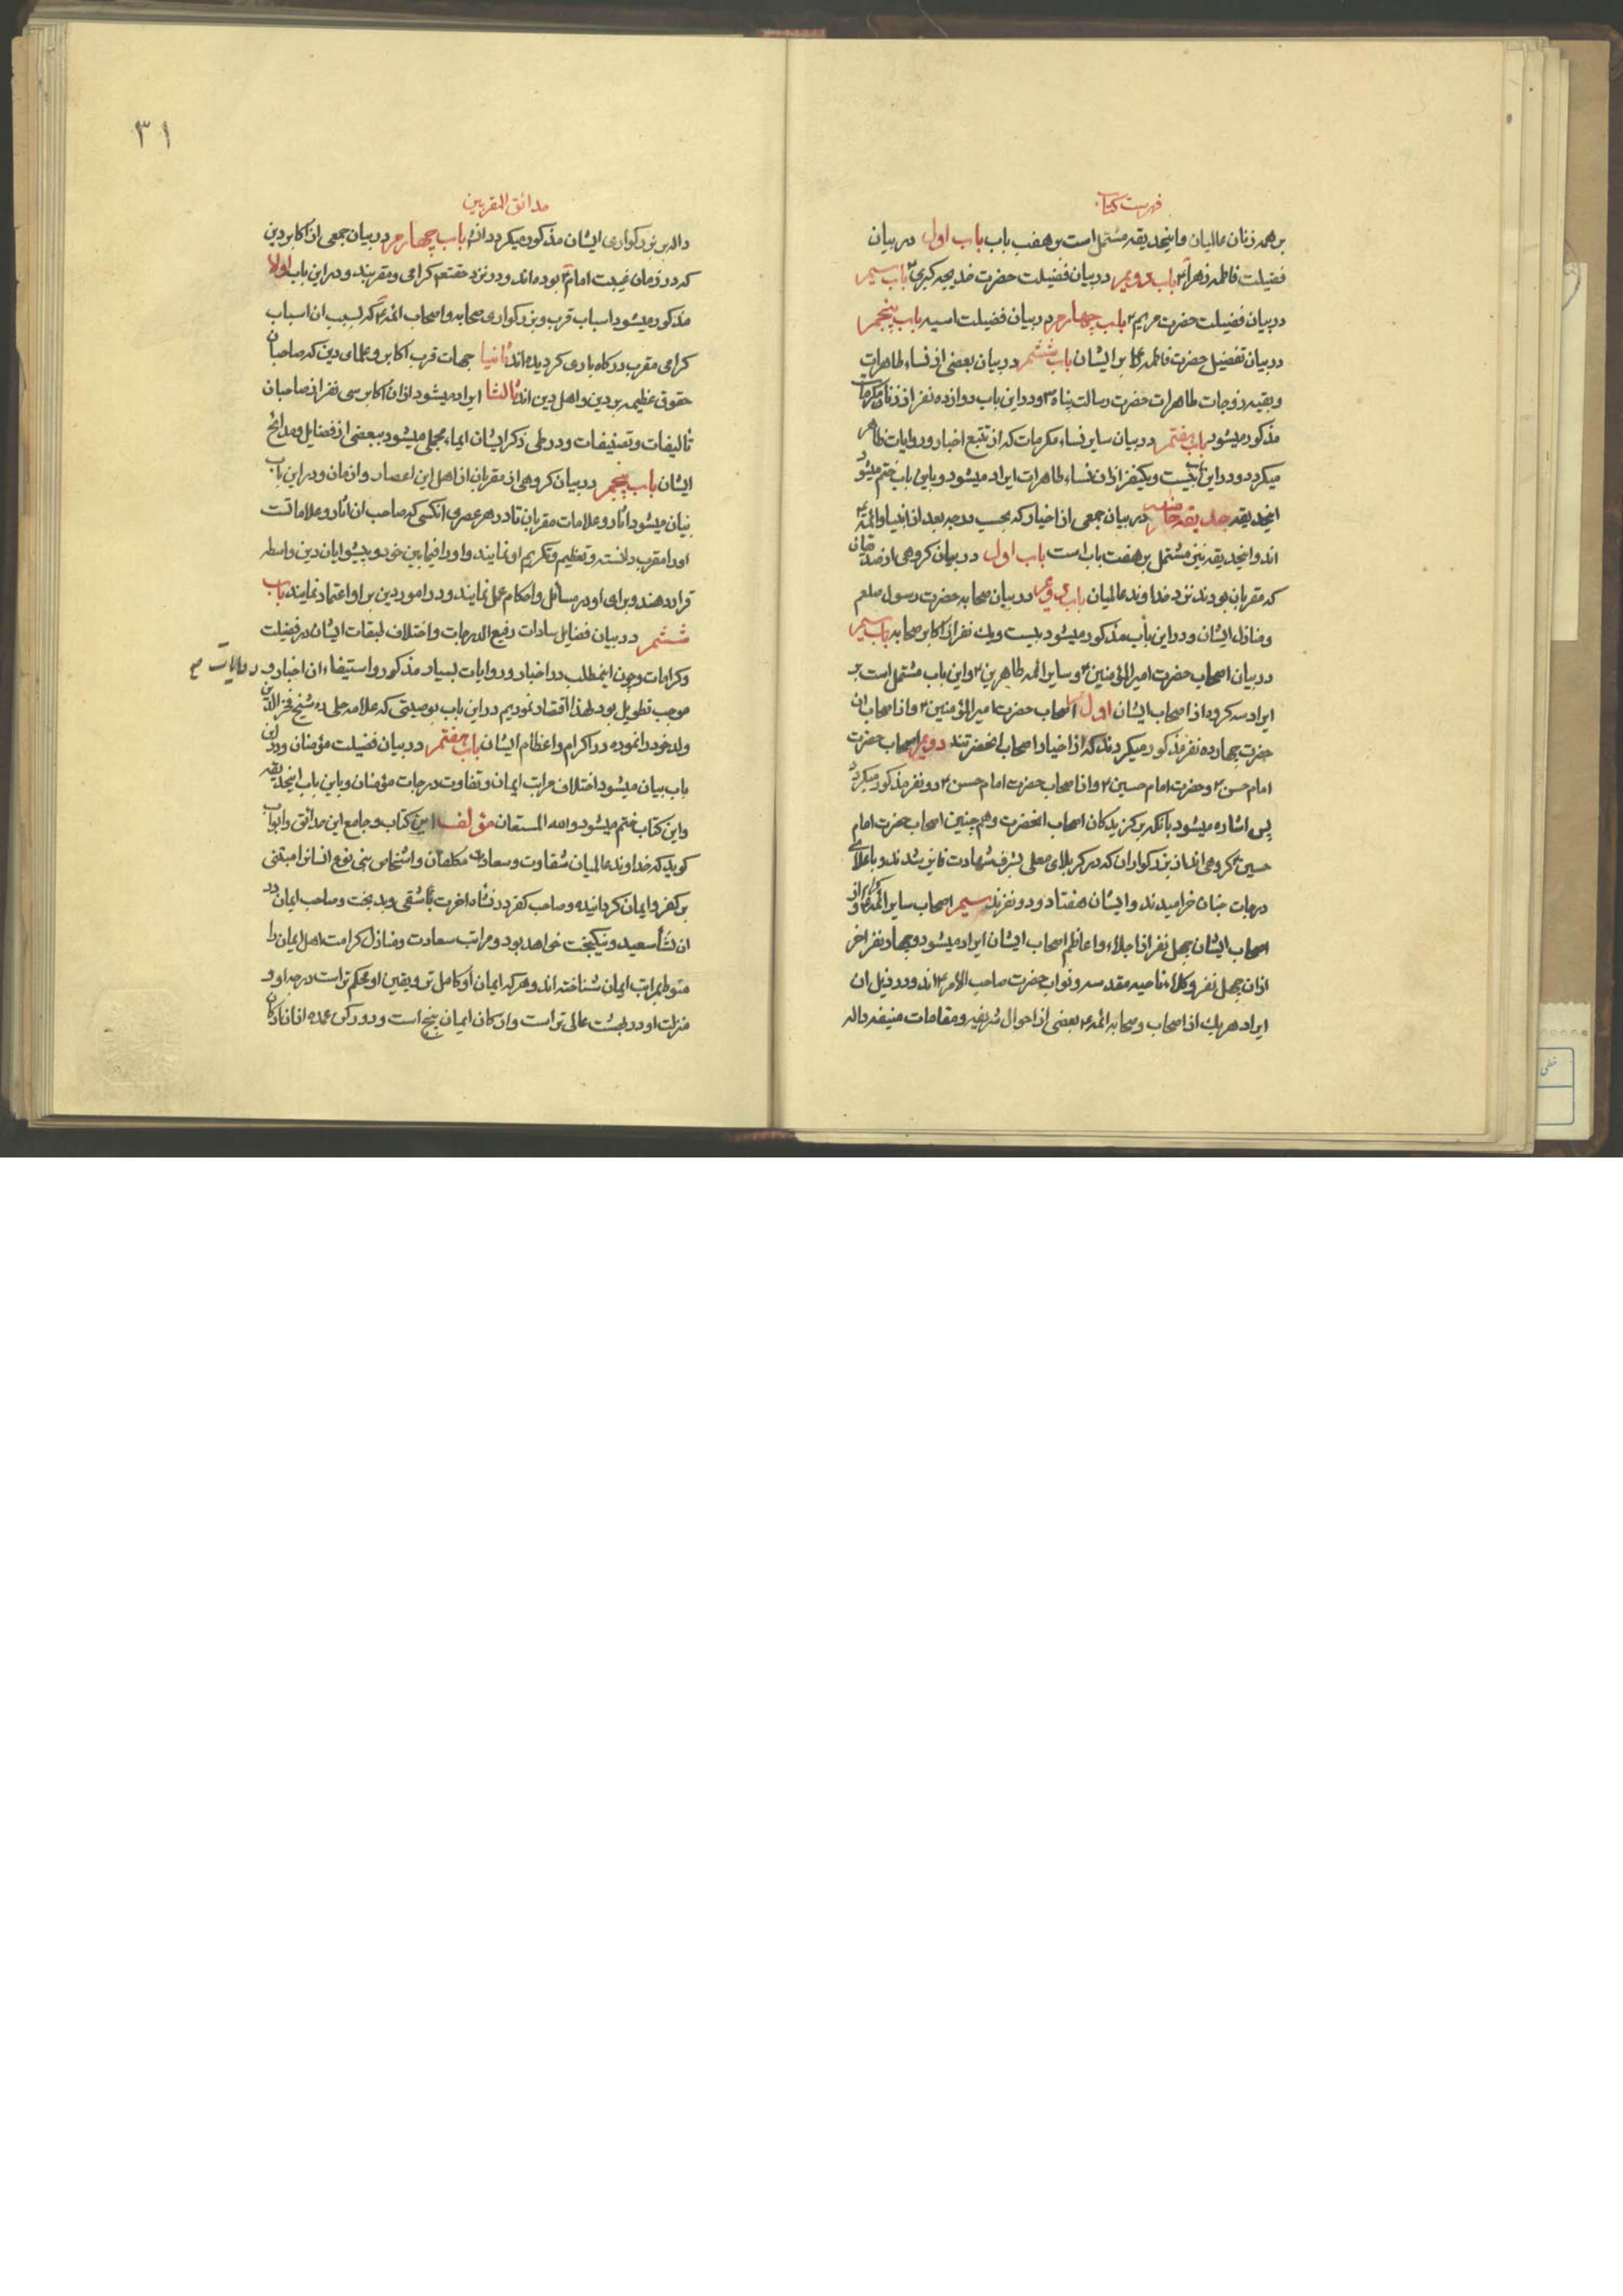 فهرست کتاب
بر همه زنان عالمیان و اینحدیقه مشتمل است بر هفت باب باب اول در بیان
فضیلت فاطمه زهرا ع باب دویم در بیان فضیلت حضرت خدیجه کبری ع باب سیم
در بیان فضیلت حضرت مریم ع باب چهارم در بیان فضیلت اسیه باب پنجم
در بیان تفضیل حضرت فاطمه ع بر ایشان باب ششم در بیان بعضی از نساء طاهرات
و بقیه زوجات طاهرات حضرت رسالت پناه ص و در این باب دوازده نفر از زنان مکرمات
مذکور میشود باب هفتم در بیان سایر نساء مکرمات که از تتبع اخبار و روایات ظاهر
میکردد و در این باب بیست و یکنفر از ان نساء طاهرات ایراد میشود و باین باب ختم میشود
اینحدیقه حدیقه خامسه در بیان جمعی از اخیار که بحسب درجه بعد از انبیا و ائمه ع
اند و اینحدیقه نیز مشتمل بر هفت باب است باب اول در بیان کروهی از صدیقان
که مقربان بودند نزد خداوند عالمیان باب دویم در بیان صحابه حضرت رسول صلعم
و منازل ایشان و در این باب مذکور میشود بیست و یک نفر از اکابر صحابه باب سیم
در بیان اصحاب حضرت امیر المؤمنین ع و سایر ائمه طاهرین ع و این باب مشتمل است بر
ایراد سه کروه از اصحاب ایشان اول اصحاب حضرت امیر المؤمنین ع و از اصحاب ان
حضرت چهارده نفر مذکور میکردند که از اخیار اصحاب انحضرتند دویم اصحاب حضرت
امام حسن ع و حضرت امام حسین ع و از اصحاب حضرت امام حسن ع دو نفر مذکور میکردد
پس اشاره میشود بانکه برکزیدکان اصحاب انحضرت و همچنین اصحاب حضرت امام
حسین ع کروهی اند از بزرکواران که در کربلای معلی بشرف شهادت فایز شدند و باعلای
درجات جنان خرامیدند و ایشان هفتاد و دو نفرند سیم اصحاب سایر ائمه ع و از
اصحاب ایشان چهل نفر از اجلاء و اعاظم اصحاب ایشان ایراد میشود و چهار نفر اخر
از ان چهل نفر وکلاء ناحیه مقدسه و نواب حضرت صاحب الامر ع اند و در ذیل ان
ایراد هر یک از اصحاب و صحابه ائمه ع بعضی از احوال شریفه و مقامات منیفه داله
۳۱
حدائق المقربین
داله بر بزرکواری ایشان مذکور میکردد ان باب چهارم در بیان جمعی از اکابر دین
که در زمان غیبت امام ع بوده اند و در نزد حقتعم کرامی و مقربند و در این باب اولا
مذکور میشود اسباب قرب و بزرکواری صحابه و اصحاب ائمه ع که بسبب ان اسباب
کرامی مقرب درکاه باری کردیده اند ثانیا جهات قرب اکابر و علمای دین که صاحبان
حقوق عظیمه بر دین و اهل دین اند ثالثا ایراد میشود از ان اکابر سی نفر از صاحبان
تألیفات و تصنیفات و در طی ذکر ایشان ایماء مجملی میشود ببعضی از فضایل و مدایح
ایشان باب پنجم در بیان کروهی از مقربان از اهل این اعصار و ازمان و در این باب
بیان میشود اثار و علامات مقربان تا در هر عصری انکسی که صاحب ان اثار و علامات است
او را مقرب دانسته و تعظیم و تکریم او نمایند و او را فیمابین خود و پیشوایان دین واسطه
قرار دهند و برای او در مسائل و احکام عمل نمایند و در امور دین بر او اعتماد نمایند باب
ششم در بیان فضایل سادات رفیع الدرجات و اختلاف طبقات ایشان در فضیلت
و کرامات و چون اینمطلب در اخبار و روایات بسیار مذکور و استیفاء ان اخبار و روایات
موجب تطویل بود لهذا اقتصار نمودیم در این باب بوصیتی که علامه حلی ره شیخ فخر الدین
ولد خود را نموده در اکرام و اعظام ایشان باب هفتم در بیان فضیلت مؤمنان و در این
باب بیان میشود اختلاف مراتب ایمان و تفاوت درجات مؤمنان و باین باب اینحدیقه
و این کتاب ختم میشود و الله المستعان مؤلف این کتاب و جامع این حدائق و ابواب
کوید که خداوند عالمیان شقاوت و سعادت مکلفان و اشخاص بنی نوع انسانرا مبتنی
بر کفر و ایمان کردانیده و صاحب کفر در نشأه اخرت شقی و بدبخت و صاحب ایمان در
ان نشأ سعید و نیکبخت خواهد بود و مراتب سعادت و منازل کرامت اهل ایمان را
منوط بمراتب ایمان شناخته اند و هر که ایمان او کامل تر و یقین او محکم تر است درجه او و
منزلت او در بهشت عالی تر است و ارکان ایمان پنج است و دو رکن عمده از ان ارکان